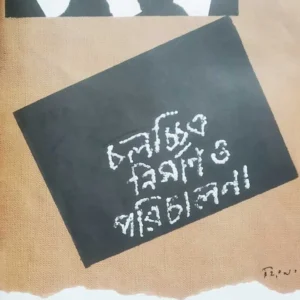 চলচ্চিত্র
নির্মাণ ও
পরিচালনা